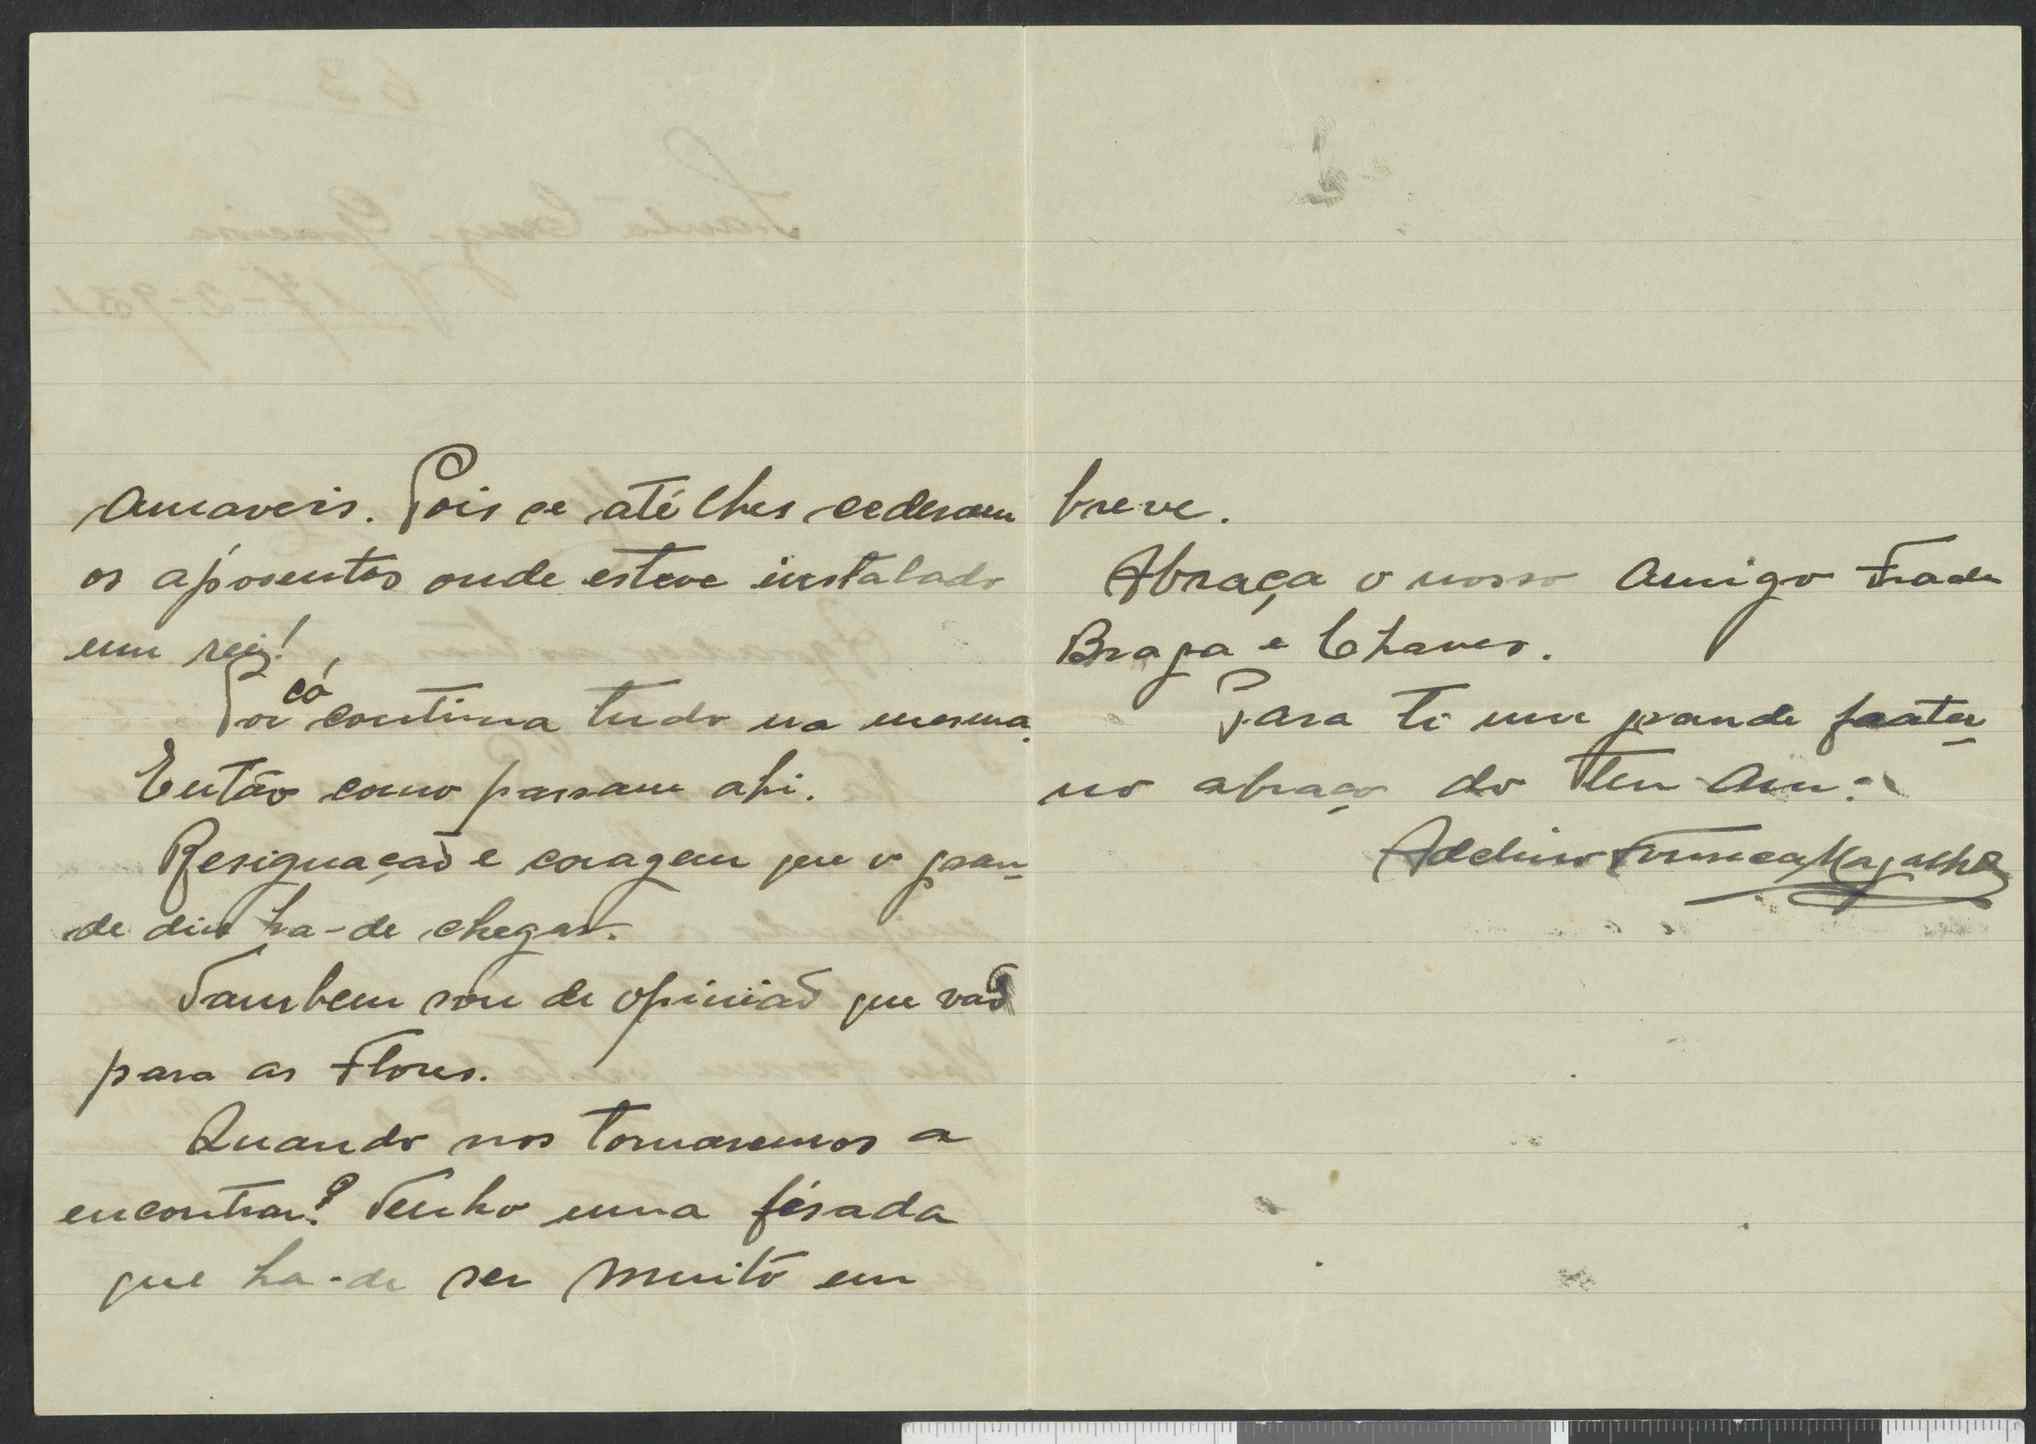 amaveis. Pois se até lhes cederam
os aposentos onde esteve instalado
um rei!
Por cá continua tudo na mesma.
Então como passam ahi.
Resignação e coragem que o gran-
de dia ha-de chegar.
Tambem sou de opinião que vão
para as Flores.
Quando nos tornaremos a
encontrar? Tenho uma fésada
que ha-de ser muito em
breve.
Abraça o nosso amigo Frade
Braga e Chaves.
Para ti um grande frater-
no abraço do teu am.º
Adelino Fonseca Magalhães